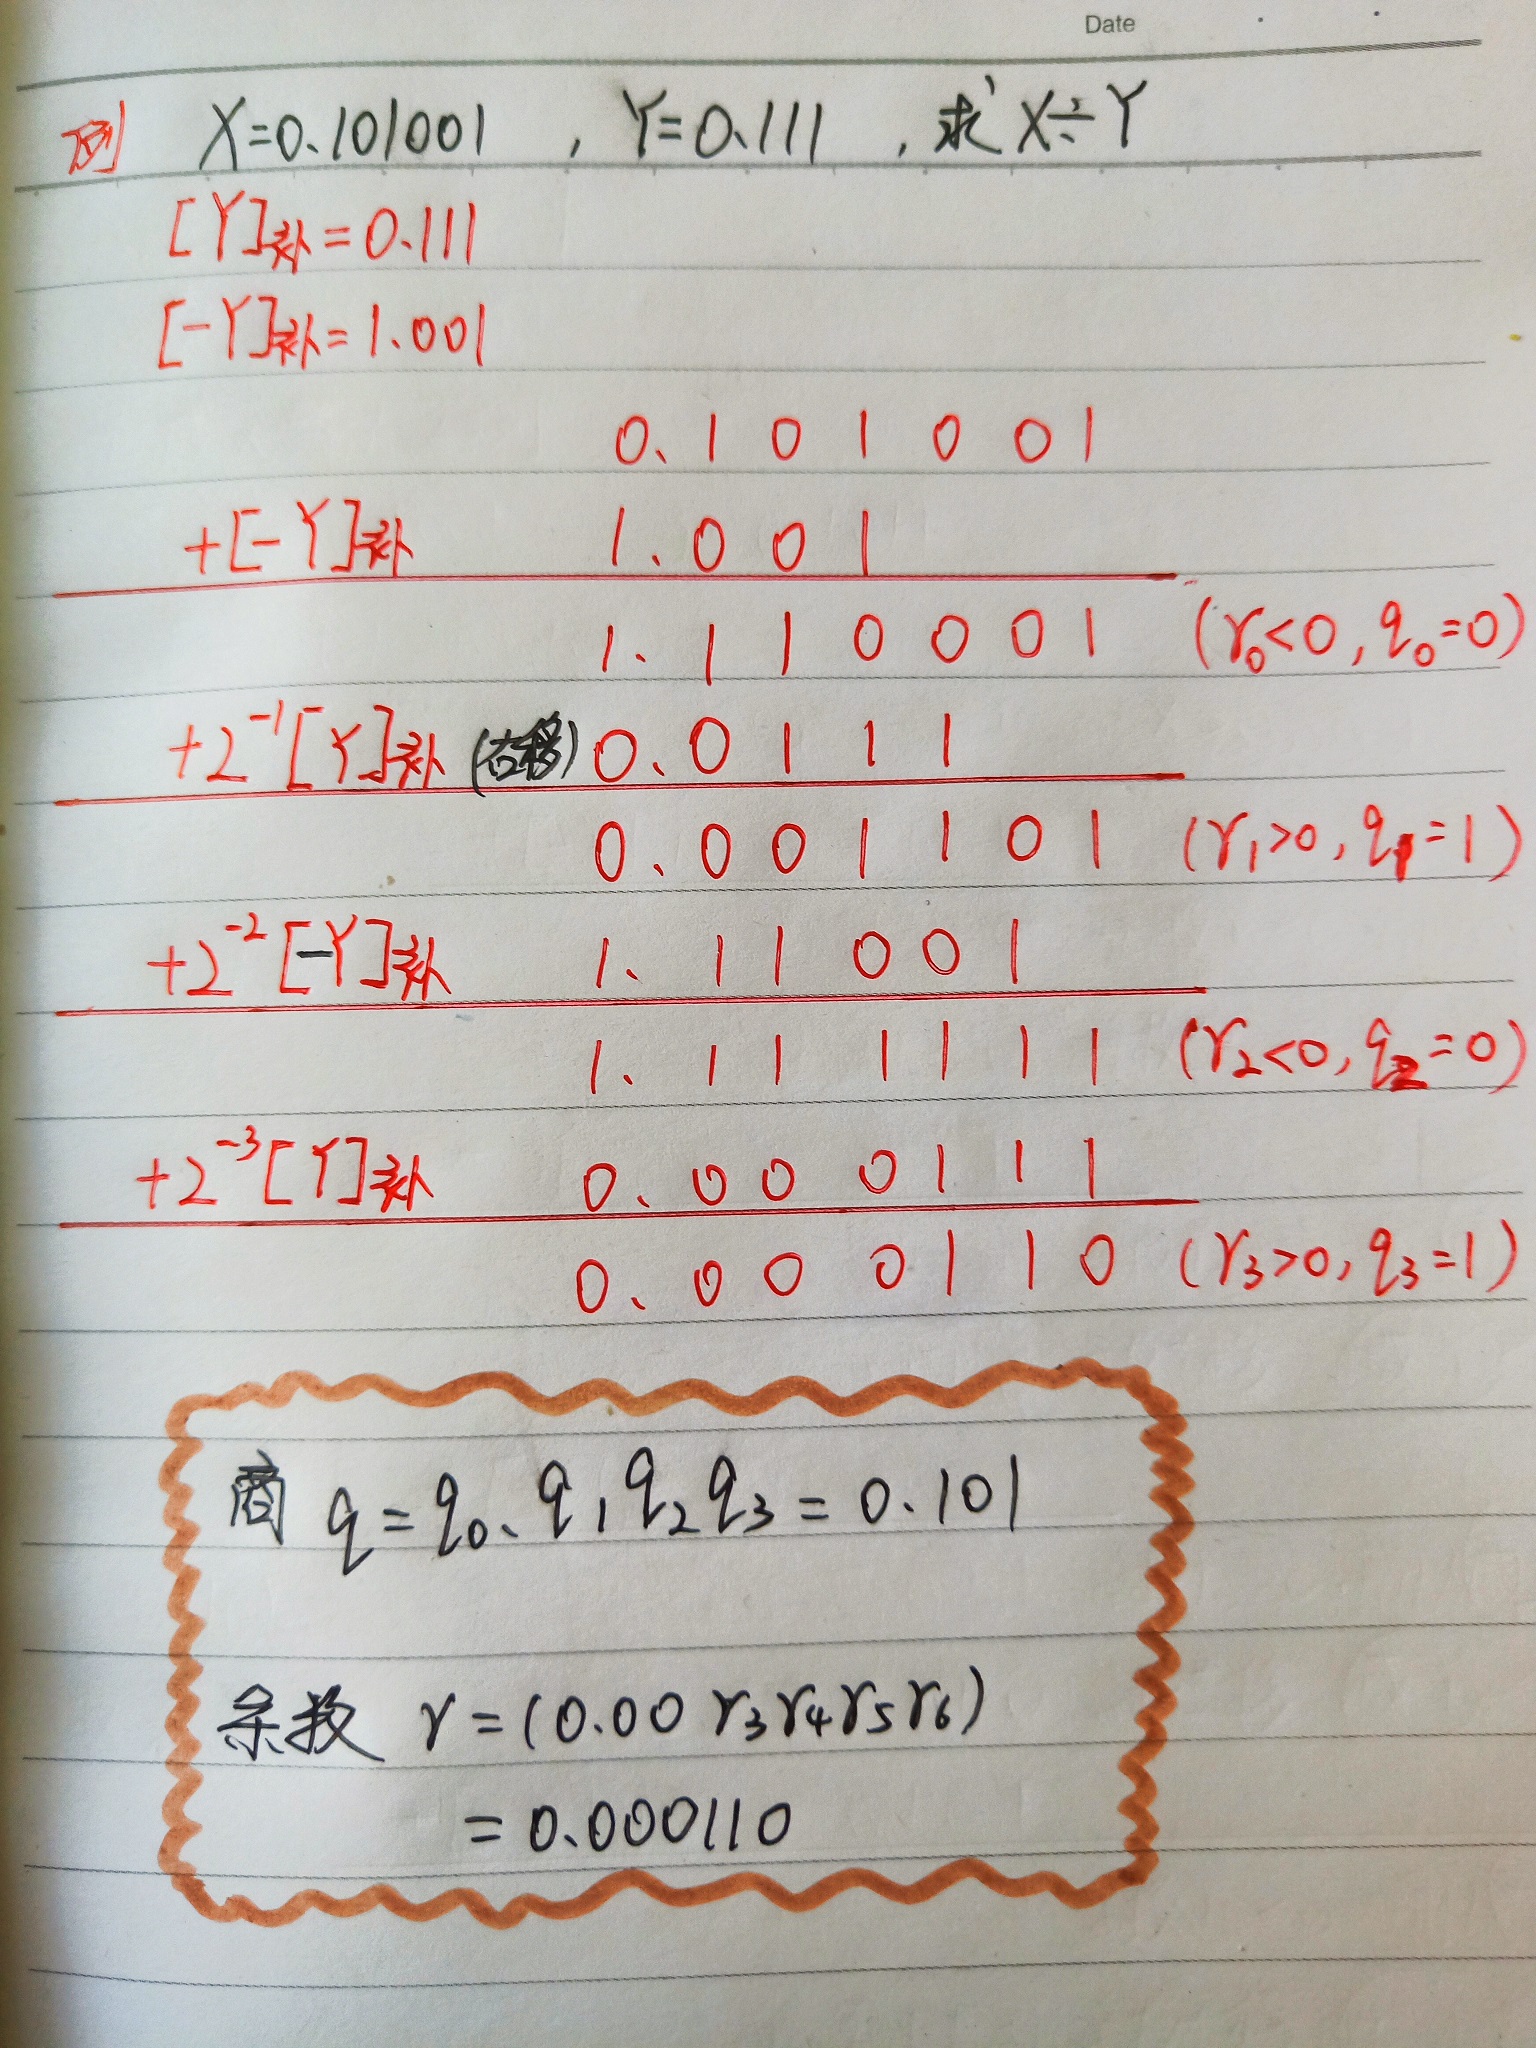 Date
例 X=0.101001 , Y=0.111 , 求 X÷Y
[Y]补=0.111
[-Y]补=1.001
0.101001
+[-Y]补 1.001
1.110001 (r₀<0, q₀=0)
+2⁻¹[Y]补 (右移) 0.0111
0.001101 (r₁>0, q₁=1)
+2⁻²[-Y]补 1.11001
1.111111 (r₂<0, q₂=0)
+2⁻³[Y]补 0.000111
0.000110 (r₃>0, q₃=1)
商 q=q₀.q₁q₂q₃=0.101
余数 r=(0.00r₃r₄r₅r₆)
=0.000110